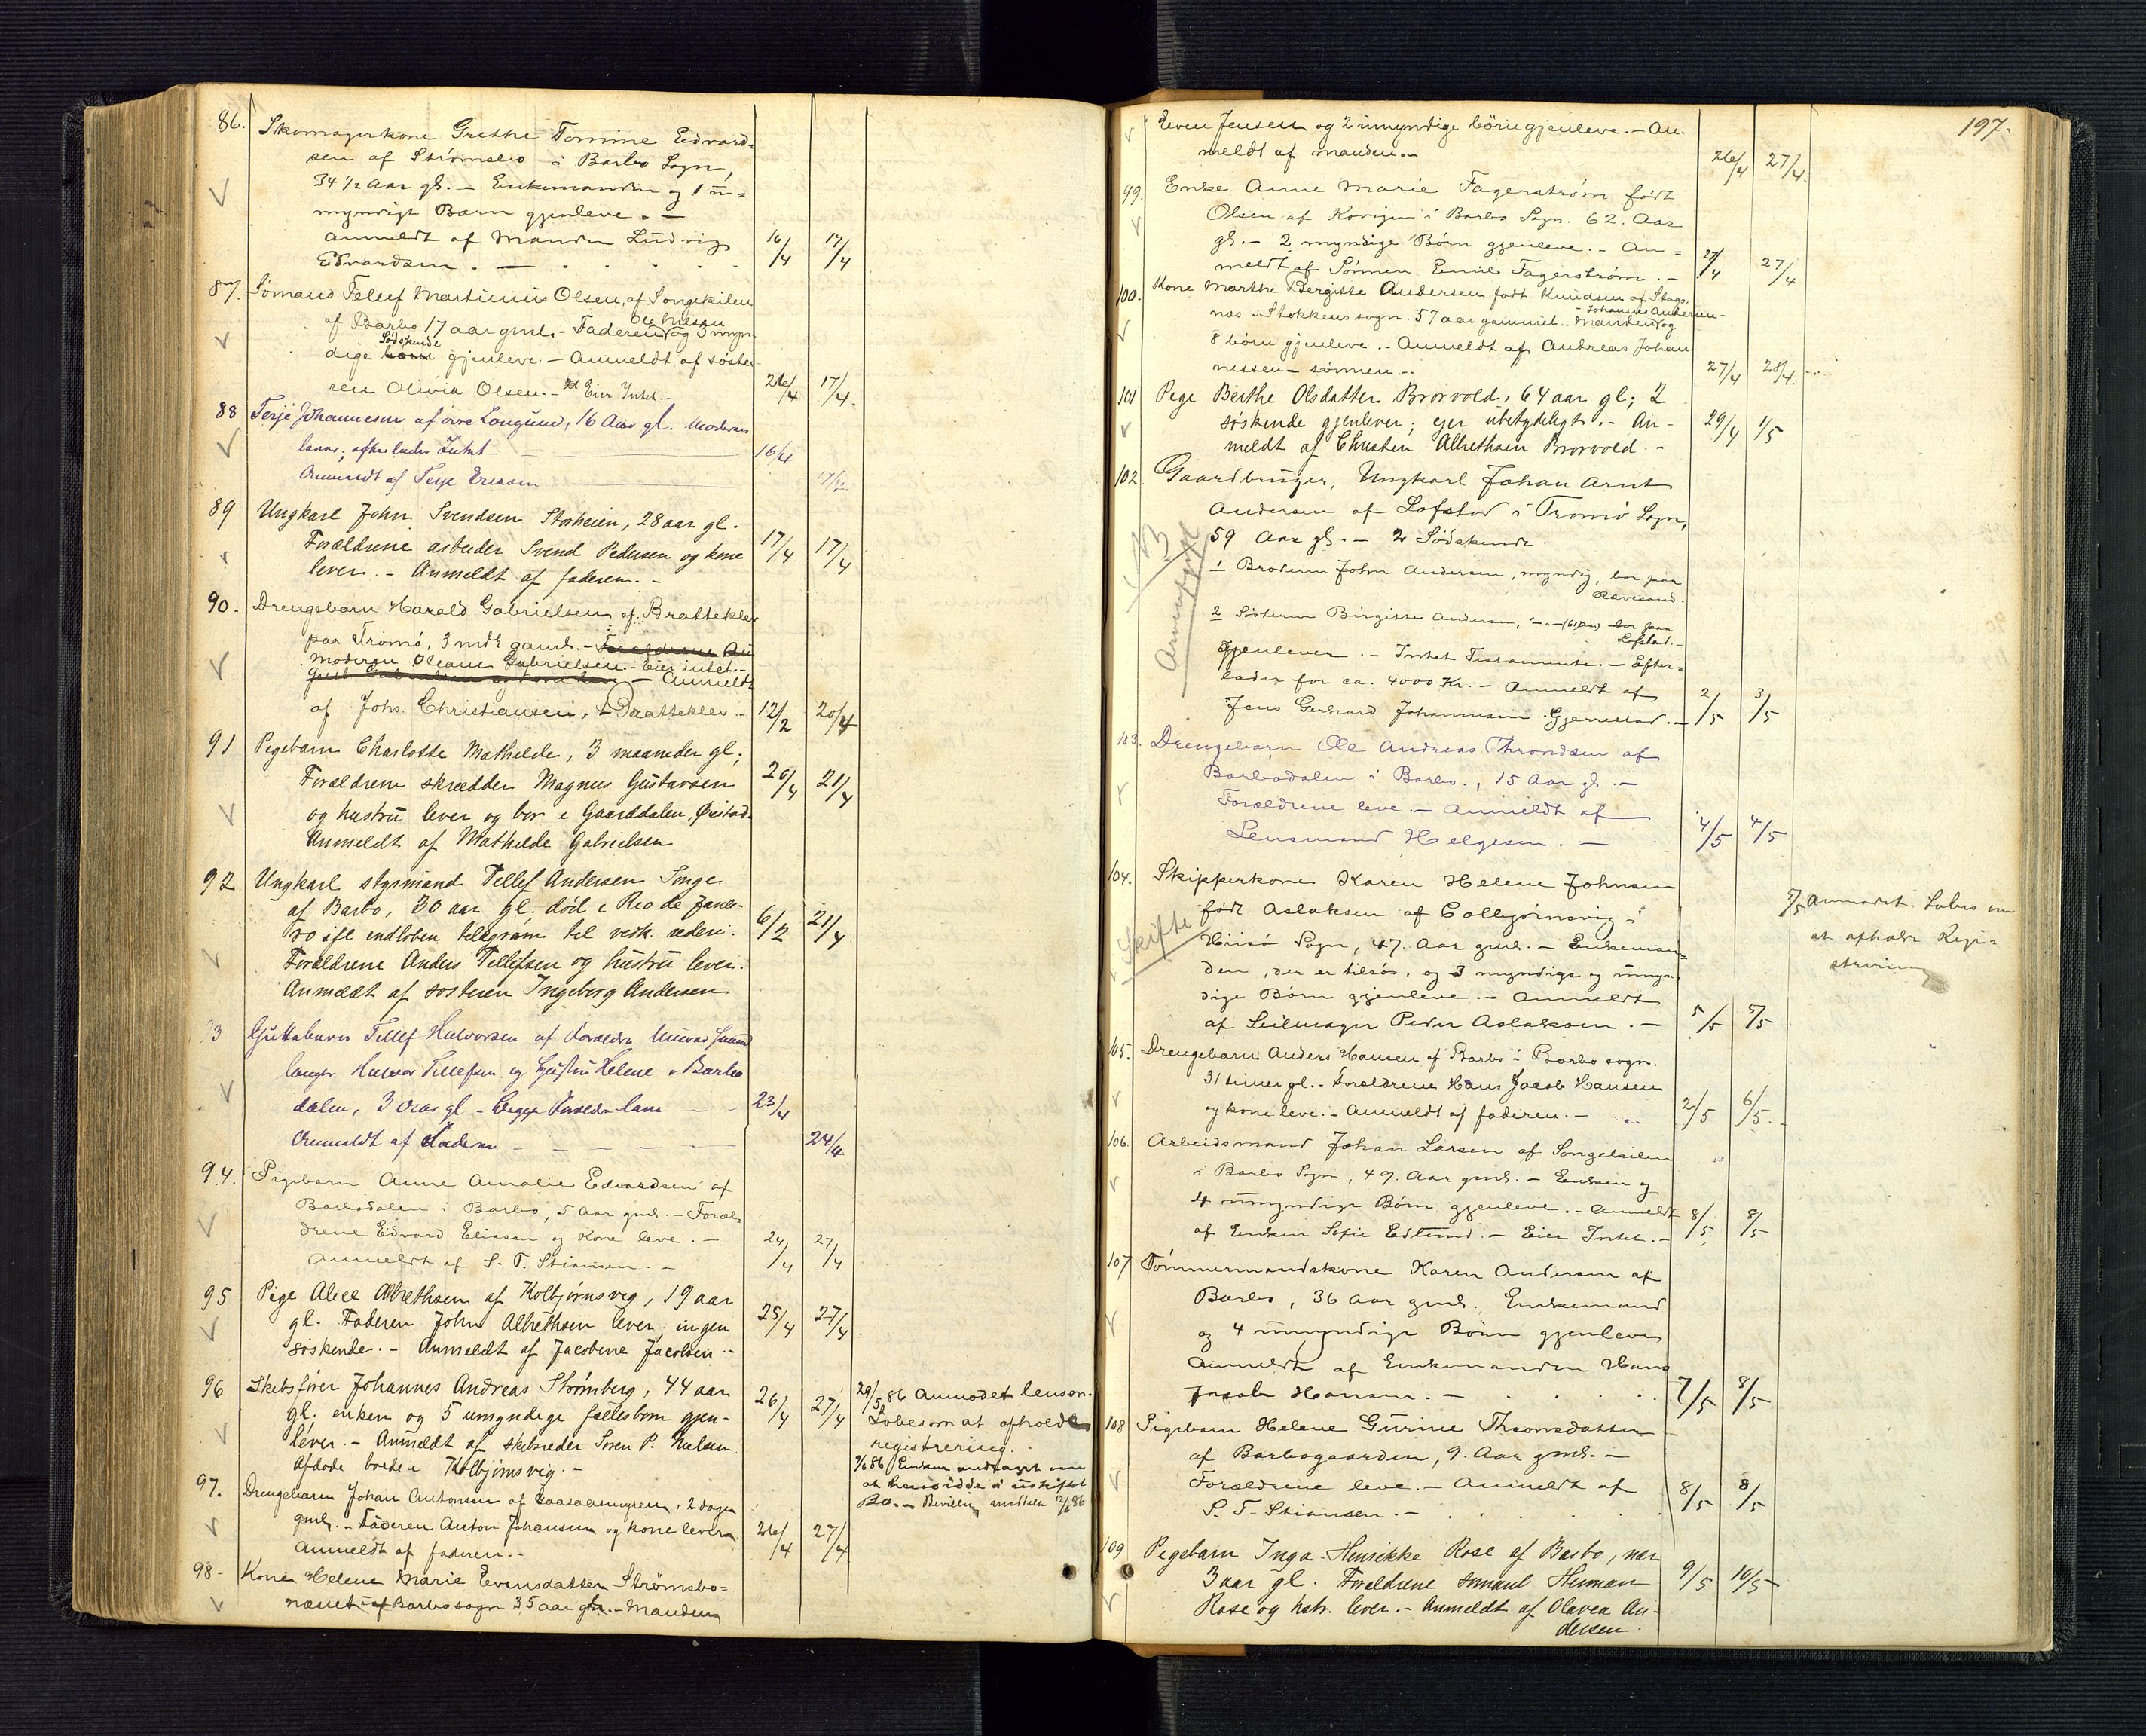 86. Skomagerkone Grethe Tomine Edvard-
sen af Strømsbo i Barbo Sogn,
34 1/2 Aar gl. - Enkemanden og 1 u-
myndigt Barn gjenleve. -
Anmeldt af Manden Ludvig
Edvardsen. - 16/4 17/4
87. Sømand Tellef Martinius Olsen, af Songekilen
af Barbo 17 aar gml. - Faderen Ole Nilsen og 3 myn-
dige Sødskende gjenleve. - Anmeldt af søste-
ren Olivia Olsen. - Eier Intet. - 26/4 17/4.
88 Terje Johannesen af øvre Longum, 16 Aar gl. Moderen
lever; efterlader Intet - 16/4
Anmeldt af Terje Ericsen 17/4
89 Ungkarl John Svendsen Storheien, 28 aar gl.
Forældrene arbeider Svend Pedersen og kone
lever. - Anmeldt af faderen. - 17/4 17/4
90. Drengebarn Harald Gabrielsen af Brattekleiv
paa Tromø, 3 mdr. gaml. - Forældrene Au
Moderen Oleane Gabrielsen - Eier intet. -
- Anmeldt
af Johs. Christiansen, Brattekleiv - 12/2 20/4
91 Pegebarn Charlotte Mathilde, 3 maaneder gl.;
Forældrene skrædder Magnus Gustavsen 20/4 21/4
og hustru lever og bor i Gaarddalen, Øiestad.
Anmeldt af Mathilde Gabrielsen
92 Ungkarl styrmand Tellef Andersen Songe
af Barbo, 30 aar gl. død i Rio de Janei-
ro ifl indløben telegram til vedk. rederi. 6/2 21/4
Forældrene Anders Tellefsen og hustru lever.
Anmeldt af søsteren Ingeborg Andersen
93 Guttebarn Tellef Halvorsen af Forældre
Halvor Tellefsen og Hustru Helene i Barbo
dalen, 3 Aar gl - Begge Forældre leve 23/4
Anmeldt af Faderen - 24/4
94. Pigebarn Anne Amalie Edvardsen af
Barbodalen i Barbo, 5 Aar gml. - Foræl-
drene Edvard Eliassen og Kone leve. -
Anmeldt af S. T. Stiansen. - 24/4 27/4
95 Pige Alice Albrethsen af Kolbjørnsvig, 19 aar
gl. Faderen John Albrethsen lever; ingen 25/4 27/4
søskende. - Anmeldt af Jacobine Jacobsen. -
96 Skibsfører Johannes Andreas Strømberg, 44 aar
gl. enken og 5 umyndige fællesbørn gjen- 26/4 27/4
lever. - Anmeldt af skibsreder Søren P. Nielsen.
Afdøde boede i Kolbjørnsvig. -
29/5 86 Anmodet lensm.
Lobes om at afholde
registrering.
Enken
at hensidde i uskiftet
Bo. - Bevilling meddelt 12/6 86
97. Drengebarn Johan Antonsen af, 2 dage
gml. - Faderen Anton Johansen og kone lever.
Anmeldt af faderen. - 26/4 27/4
98 - Kone Helene Marie Evensdatter Strømsbo-
næsset i Barbo sogn 35 aar gl. - Manden
197.
Even Jensen og 2 umyndige børn gjenleve. - An-
meldt af manden. - 26/4 27/4.
99. Enke Anne Marie Fagerstrøm født
Olsen af i Barbo Sogn. 62. Aar
gl. - 2 myndige Børn gjenleve. - An-
meldt af Sønnen Emil Fagerstrøm. - 27/4 27/4
100. Kone Marthe Bergitte Andersen født Knudsen af Stags-
næs i Stokken sogn. 57 aar gammel. - Manden Johannes Andersen og
8 børn gjenleve. - Anmeldt af Andreas Johan-
nessen - sønnen. - 27/4 28/4.
101 Pege Berthe Olsdatter Brorvold, 64 aar gl; 2
søskende gjenlever; ejer ubetydeligt. - An- 29/4 1/5
meldt af Christen Albrethsen Brorvold. -
102. Gaardbruger, Ungkarl Johan Arnt
Andersen af Lofstad i Tromø Sogn,
59 Aar gl. - 2 Sødskende
1 Broderen John Andersen, myndig, bor paa
Revesand.
2 Søsteren Birgitte Andersen, bor paa
Lofstad. -
Gjenlever. - Intet Testamente. - Efter-
lader for ca. 4000 Kr. - Anmeldt af
Jens Gerhard Johannesen Gjerrestad. - 2/5 3/5
103. Drengebarn Ole Andreas Throndsen af
Barbodalen i Barbo., 15 Aar gl. -
Forældrene leve. - Anmeldt af
Lensmand Helgesen. - 4/5 4/5
104. Skipperkone Karen Helene Johnsen
født Aslaksen af Colbjørnsvig i
Hisø Sogn, 47. Aar gml. - Enkeman-
den, der er tilsøs, og 3 myndige og umyn-
dige Børn gjenleve. - Anmeldt
af Seilmager Peder Aslaksen. - 5/5 5/5
Skifte
5/5 Anmodet Lobes om
at afholde Regi-
strering
105. Drengebarn Anders Hansen af Barbo i Barbo sogn.
31 timer gl. - Forældrene Hans Jacob Hansen
og kone leve. - Anmeldt af faderen. - 2/5 6/5.
106. Arbeidsmand Johan Larsen af Songekilen
i Barbo Sogn, 49. Aar gml. - Enken og
4 umyndige Børn gjenleve. - Anmeldt
af Enken Sofie Edlund. - Eier Intet. - 8/5 8/5
107 Tømmermandskone Karen Andersen af
Barbo, 36 Aar gml. Enkemand
og 4 umyndige Børn gjenleve
Anmeldt af Enkemanden Hans
Jacob Hansen. - 7/5 8/5
108 Pigebarn Helene Gurine Thomsdatter
af Barbogaarden, 9. Aar gml. -
Forældrene leve. - Anmeldt af
S. T. Stiansen. - 8/5 8/5
109 Pegebarn Inga Henrikke Rose af Barbo, nær
3 aar gl. Forældrene sømand Herman 9/5 10/5
Rose og hstr. lever. - Anmeldt af Olavea An-
dersen.